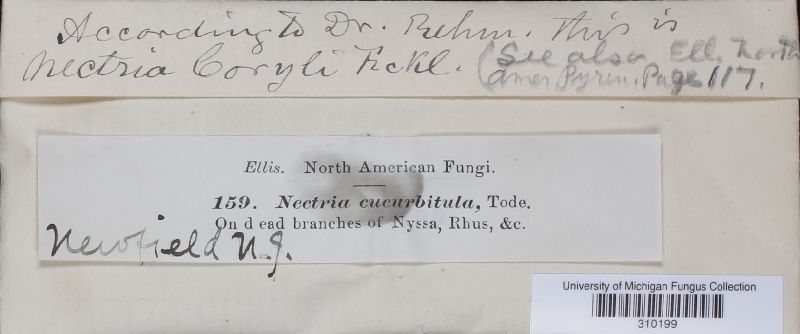 According to Dr. Rehm. this is
Nectria Coryli Fckl. (See also Ell. North
Amer Pyren. Page 117.
Ellis. North American Fungi.
159. Nectria cucurbitula, Tode.
On d ead branches of Nyssa, Rhus, &c.
Newfield N.J.
University of Michigan Fungus Collection
310199